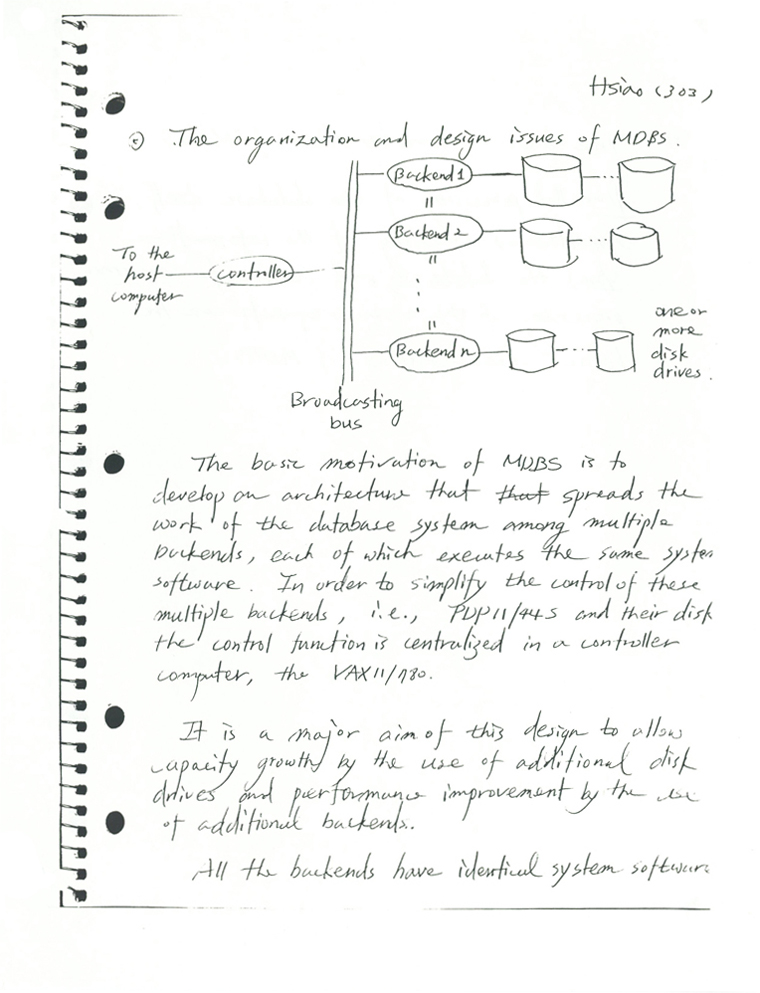 Hsiao (303)
The organization and design issues of MDBS.
Backend 1
Backend 2
To the
host
computer
controller
Backend n
one or
more
disk
drives.
Broadcasting
bus
The basic motivation of MDBS is to
develop an architecture that that spreads the
work of the database system among multiple
backends, each of which executes the same system
software. In order to simplify the control of these
multiple backends, i.e., PDP11/44s and their disk
the control function is centralized in a controller
computer, the VAX11/780.
It is a major aim of this design to allow
capacity growth by the use of additional disk
drives and performance improvement by the use
of additional backends.
All the backends have identical system software